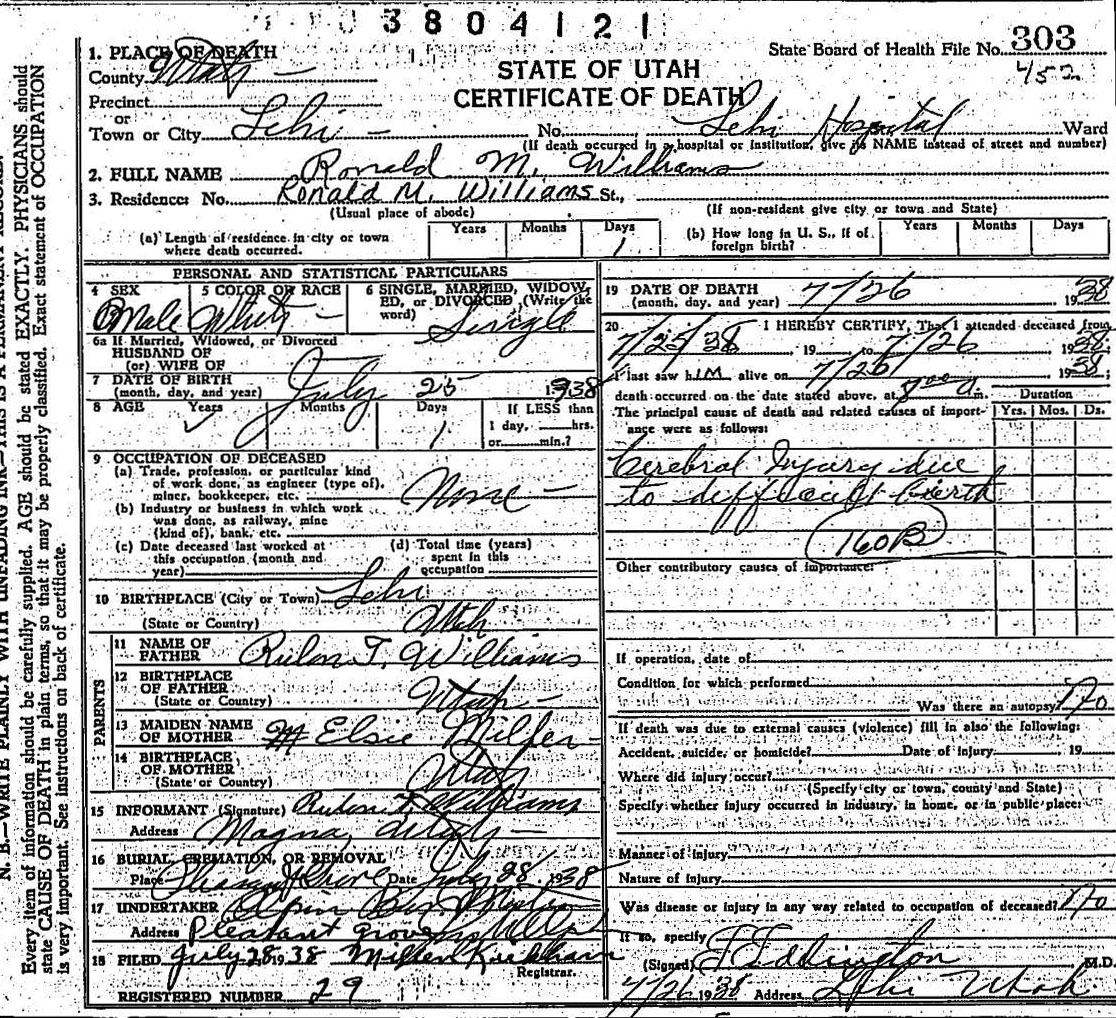 3804121
State Board of Health File No. 303
452
STATE OF UTAH
CERTIFICATE OF DEATH
1. PLACE OF DEATH
County Utah
Precinct
or
Town or City Lehi No. Lehi Hospital Ward
(If death occurred in a hospital or institution, give its NAME instead of street and number)
2. FULL NAME Ronald M. Williams
3. Residence: No. Ronald M. Williams St.,
(Usual place of abode) (If non-resident give city or town and State)
(a) Length of residence in city or town where death occurred. Years Months Days 1
(b) How long in U. S., if of foreign birth? Years Months Days
PERSONAL AND STATISTICAL PARTICULARS
4 SEX Male
5 COLOR OR RACE White
6 SINGLE, MARRIED, WIDOWED, or DIVORCED (Write the word) Single
6a If Married, Widowed, or Divorced
HUSBAND OF
(or) WIFE OF
7 DATE OF BIRTH
(month, day, and year) July 25 1938
8 AGE Years Months Days 1 If LESS than
1 day, hrs.
or min.?
9 OCCUPATION OF DECEASED
(a) Trade, profession, or particular kind
of work done, as engineer (type of),
miner, bookkeeper, etc. None
(b) Industry or business in which work
was done, as railway, mine
(kind of), bank, etc.
(c) Date deceased last worked at
this occupation (month and
year)
(d) Total time (years)
spent in this
occupation
10 BIRTHPLACE (City or Town) Lehi
(State or Country) Utah
PARENTS
11 NAME OF
FATHER Rulon T. Williams
12 BIRTHPLACE
OF FATHER
(State or Country) Utah
13 MAIDEN NAME
OF MOTHER Elsie
14 BIRTHPLACE
OF MOTHER
(State or Country) Utah
15 INFORMANT (Signature) Rulon T. Williams
Address Magna, Utah
16 BURIAL, CREMATION, OR REMOVAL
Place Pleasant Grove Date July 28, 1938
17 UNDERTAKER
Address Pleasant Grove
18 FILED July 28 1938 Milton Kirkham
Registrar.
REGISTERED NUMBER 29
19 DATE OF DEATH
(month, day, and year) 7/26 1938
20 I HEREBY CERTIFY, That I attended deceased from
7/25/38, 19 to 7/26 1938
I last saw him alive on 7/26 1938;
death occurred on the date stated above, at 8:00 a.m.
The principal cause of death and related causes of importance were as follows:
Duration
Yrs. Mos. Ds.
Cerebral Injury due
to difficult birth
160B
Other contributory causes of importance:
If operation, date of
Condition for which performed
Was there an autopsy? No
If death was due to external causes (violence) fill in also the following:
Accident, suicide, or homicide? Date of injury 19
Where did injury occur?
(Specify city or town, county and State)
Specify whether injury occurred in industry, in home, or in public place:
Manner of injury
Nature of injury
Was disease or injury in any way related to occupation of deceased? No
If so, specify
(Signed) Eddington M.D.
7/26 1938 Address Lehi Utah
N. B.—WRITE PLAINLY WITH UNFADING INK—THIS IS A PERMANENT RECORD.
Every item of information should be carefully supplied. AGE should be stated EXACTLY. PHYSICIANS should
state CAUSE OF DEATH in plain terms, so that it may be properly classified. Exact statement of OCCUPATION
is very important. See instructions on back of certificate.